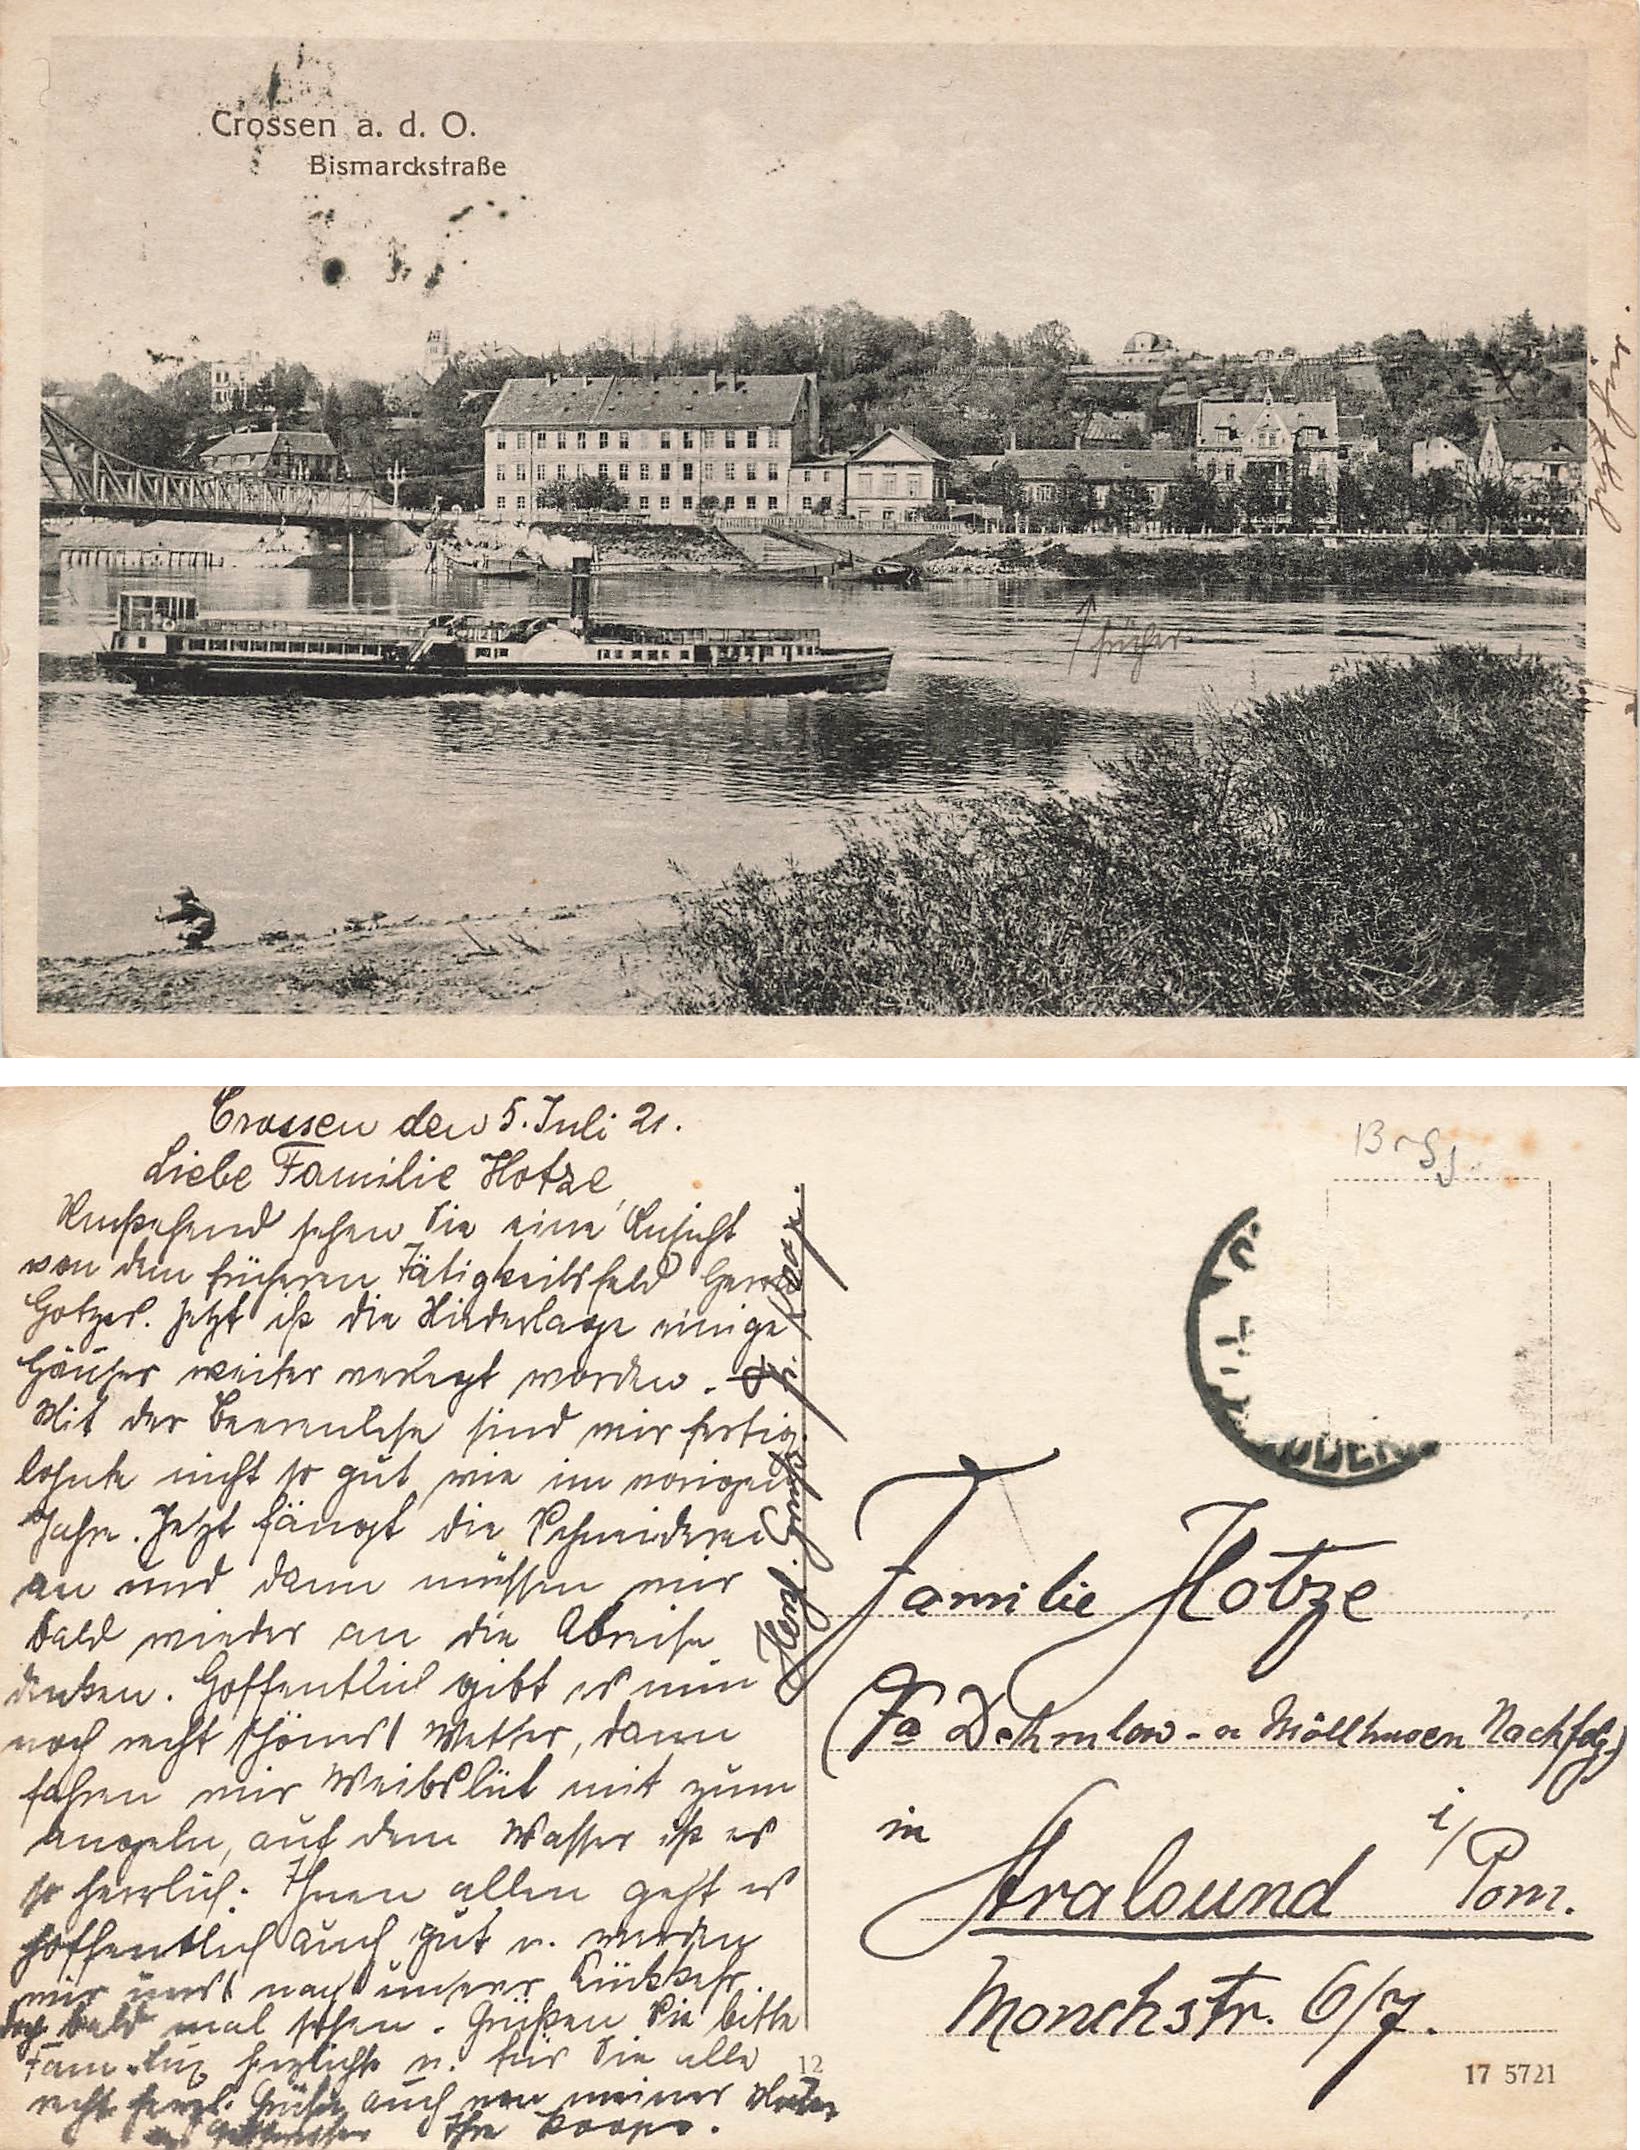 Crossen a. d. O.
Bismarckstraße
jetzt hier
↑ früher
Crossen den 5. Juli 21.
Liebe Familie Hotze,
Umstehend sehen Sie eine Ansicht
von dem früheren Tätigkeitsfeld Herrn
Hotzes. Jetzt ist die Niederlage einige
Häuser weiter verlegt worden.
Mit der Beerenlese sind wir fertig,
lohnte nicht so gut wie im vorigen
Jahre. Jetzt fängt die Schneiderei
an und dann müssen wir
bald wieder an die Abreise
denken. Hoffentlich gibt es nun
noch recht schönes Wetter, dann
fahren wir Weibslüt mit zum
angeln, auf dem Wasser ist es
so herrlich. Ihnen allen geht es
hoffentlich auch gut u. werden
wir uns nach unserer Rückkehr
doch bald mal sehen. Grüßen Sie bitte
Fam. Lux herzlichst u. für Sie alle
recht herzl. Grüße auch von meiner Mutter
Ihre
Herzl. Gruß
Familie Hotze
(Fa Dehmlow - Möllhusen Nachflg.)
in Stralsund i/Pom.
Mönchstr. 6/7.
12
17 5721